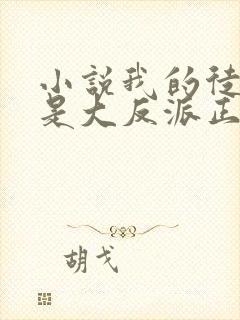 小説我的徒
是大反派正
胡戈